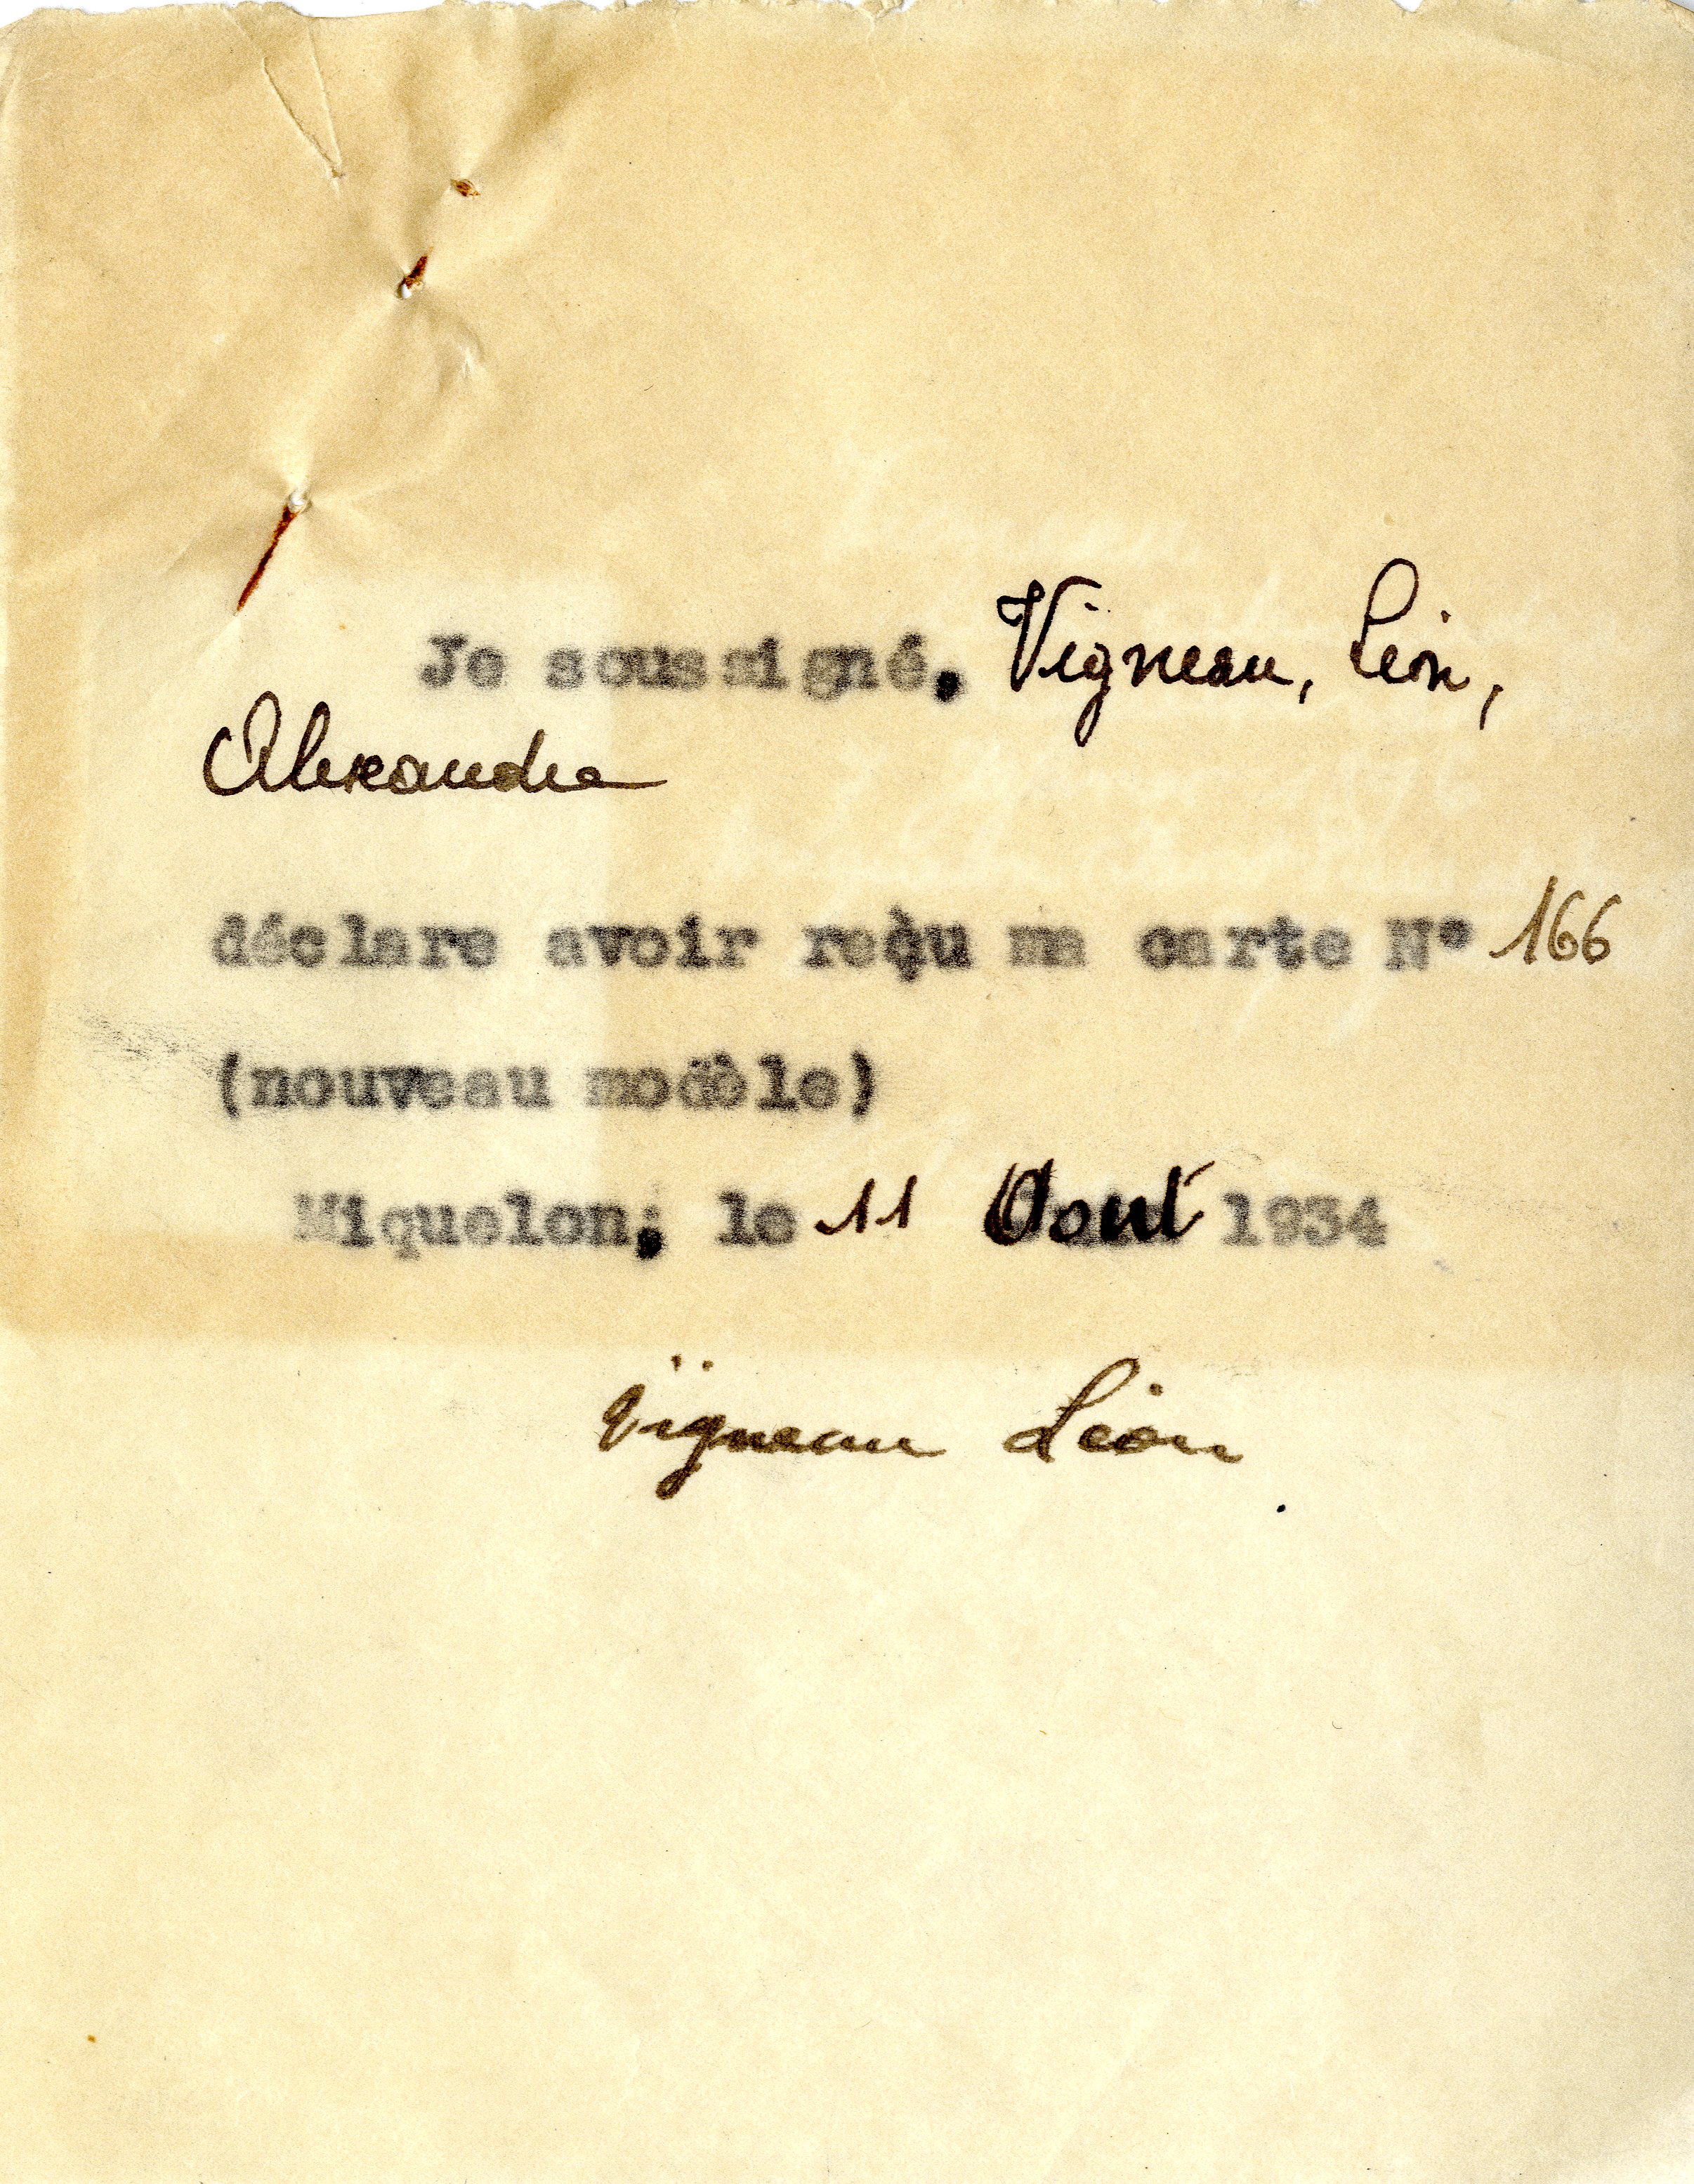 Je soussigné, Vigneau, Léon,
Alexandre
déclare avoir reçu ma carte N° 166
(nouveau modèle)
Miquelon, le 11 Aout 1934
Vigneau Léon